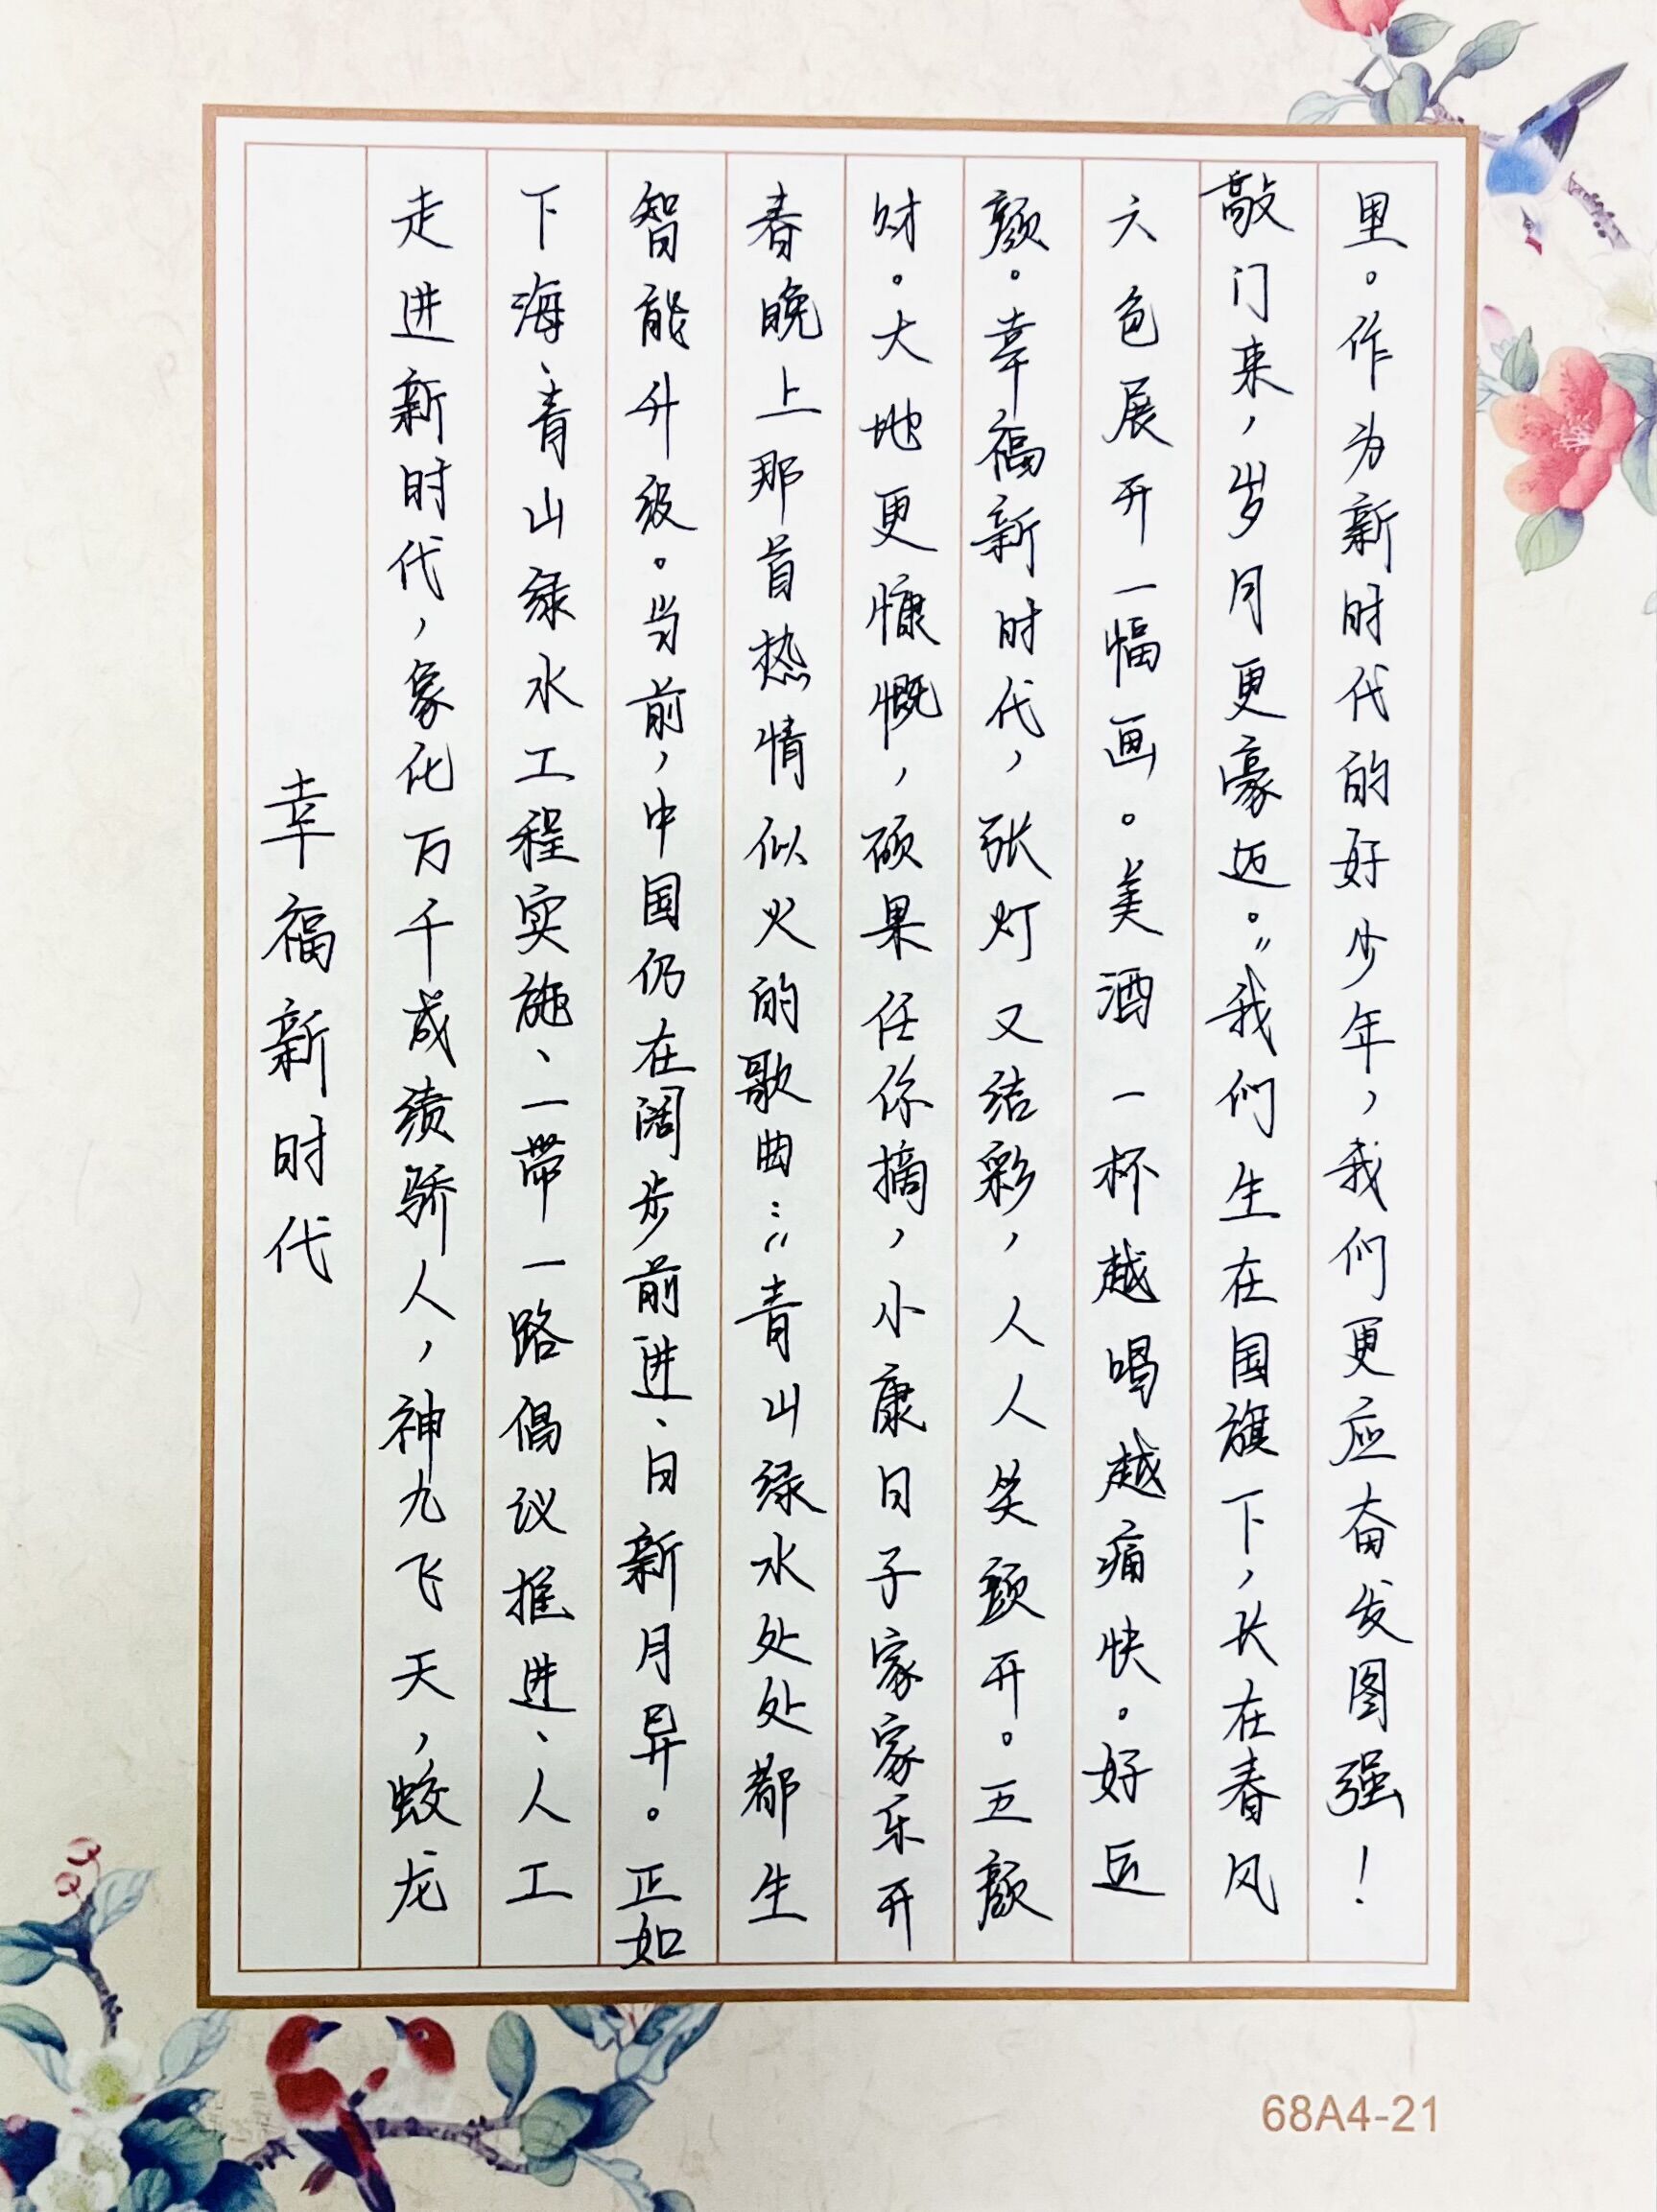 幸福新时代
走进新时代,象化万千成绩骄人,神九飞天,蛟龙
下海、青山绿水工程实施、一带一路倡议推进、人工
智能升级。当前,中国仍在阔步前进、日新月异。正如
春晚上那首热情似火的歌曲:“青山绿水处处都生
财。大地更慷慨,硕果任你摘,小康日子家家乐开
颜。幸福新时代,张灯又结彩,人人笑颜开。五颜
六色展开一幅画。美酒一杯越喝越痛快。好运
敲门来,岁月更豪迈。”我们生在国旗下,长在春风
里。作为新时代的好少年,我们更应奋发图强!
68A4-21